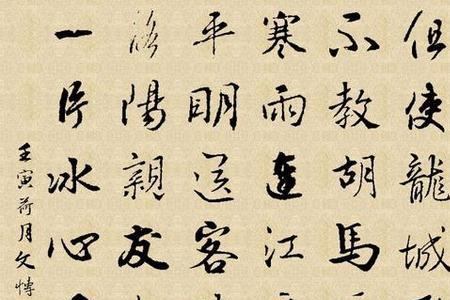 但使龍城
不教胡馬
寒雨連江
平明送客
洛陽親友
一片冰心
壬寅荷月文博